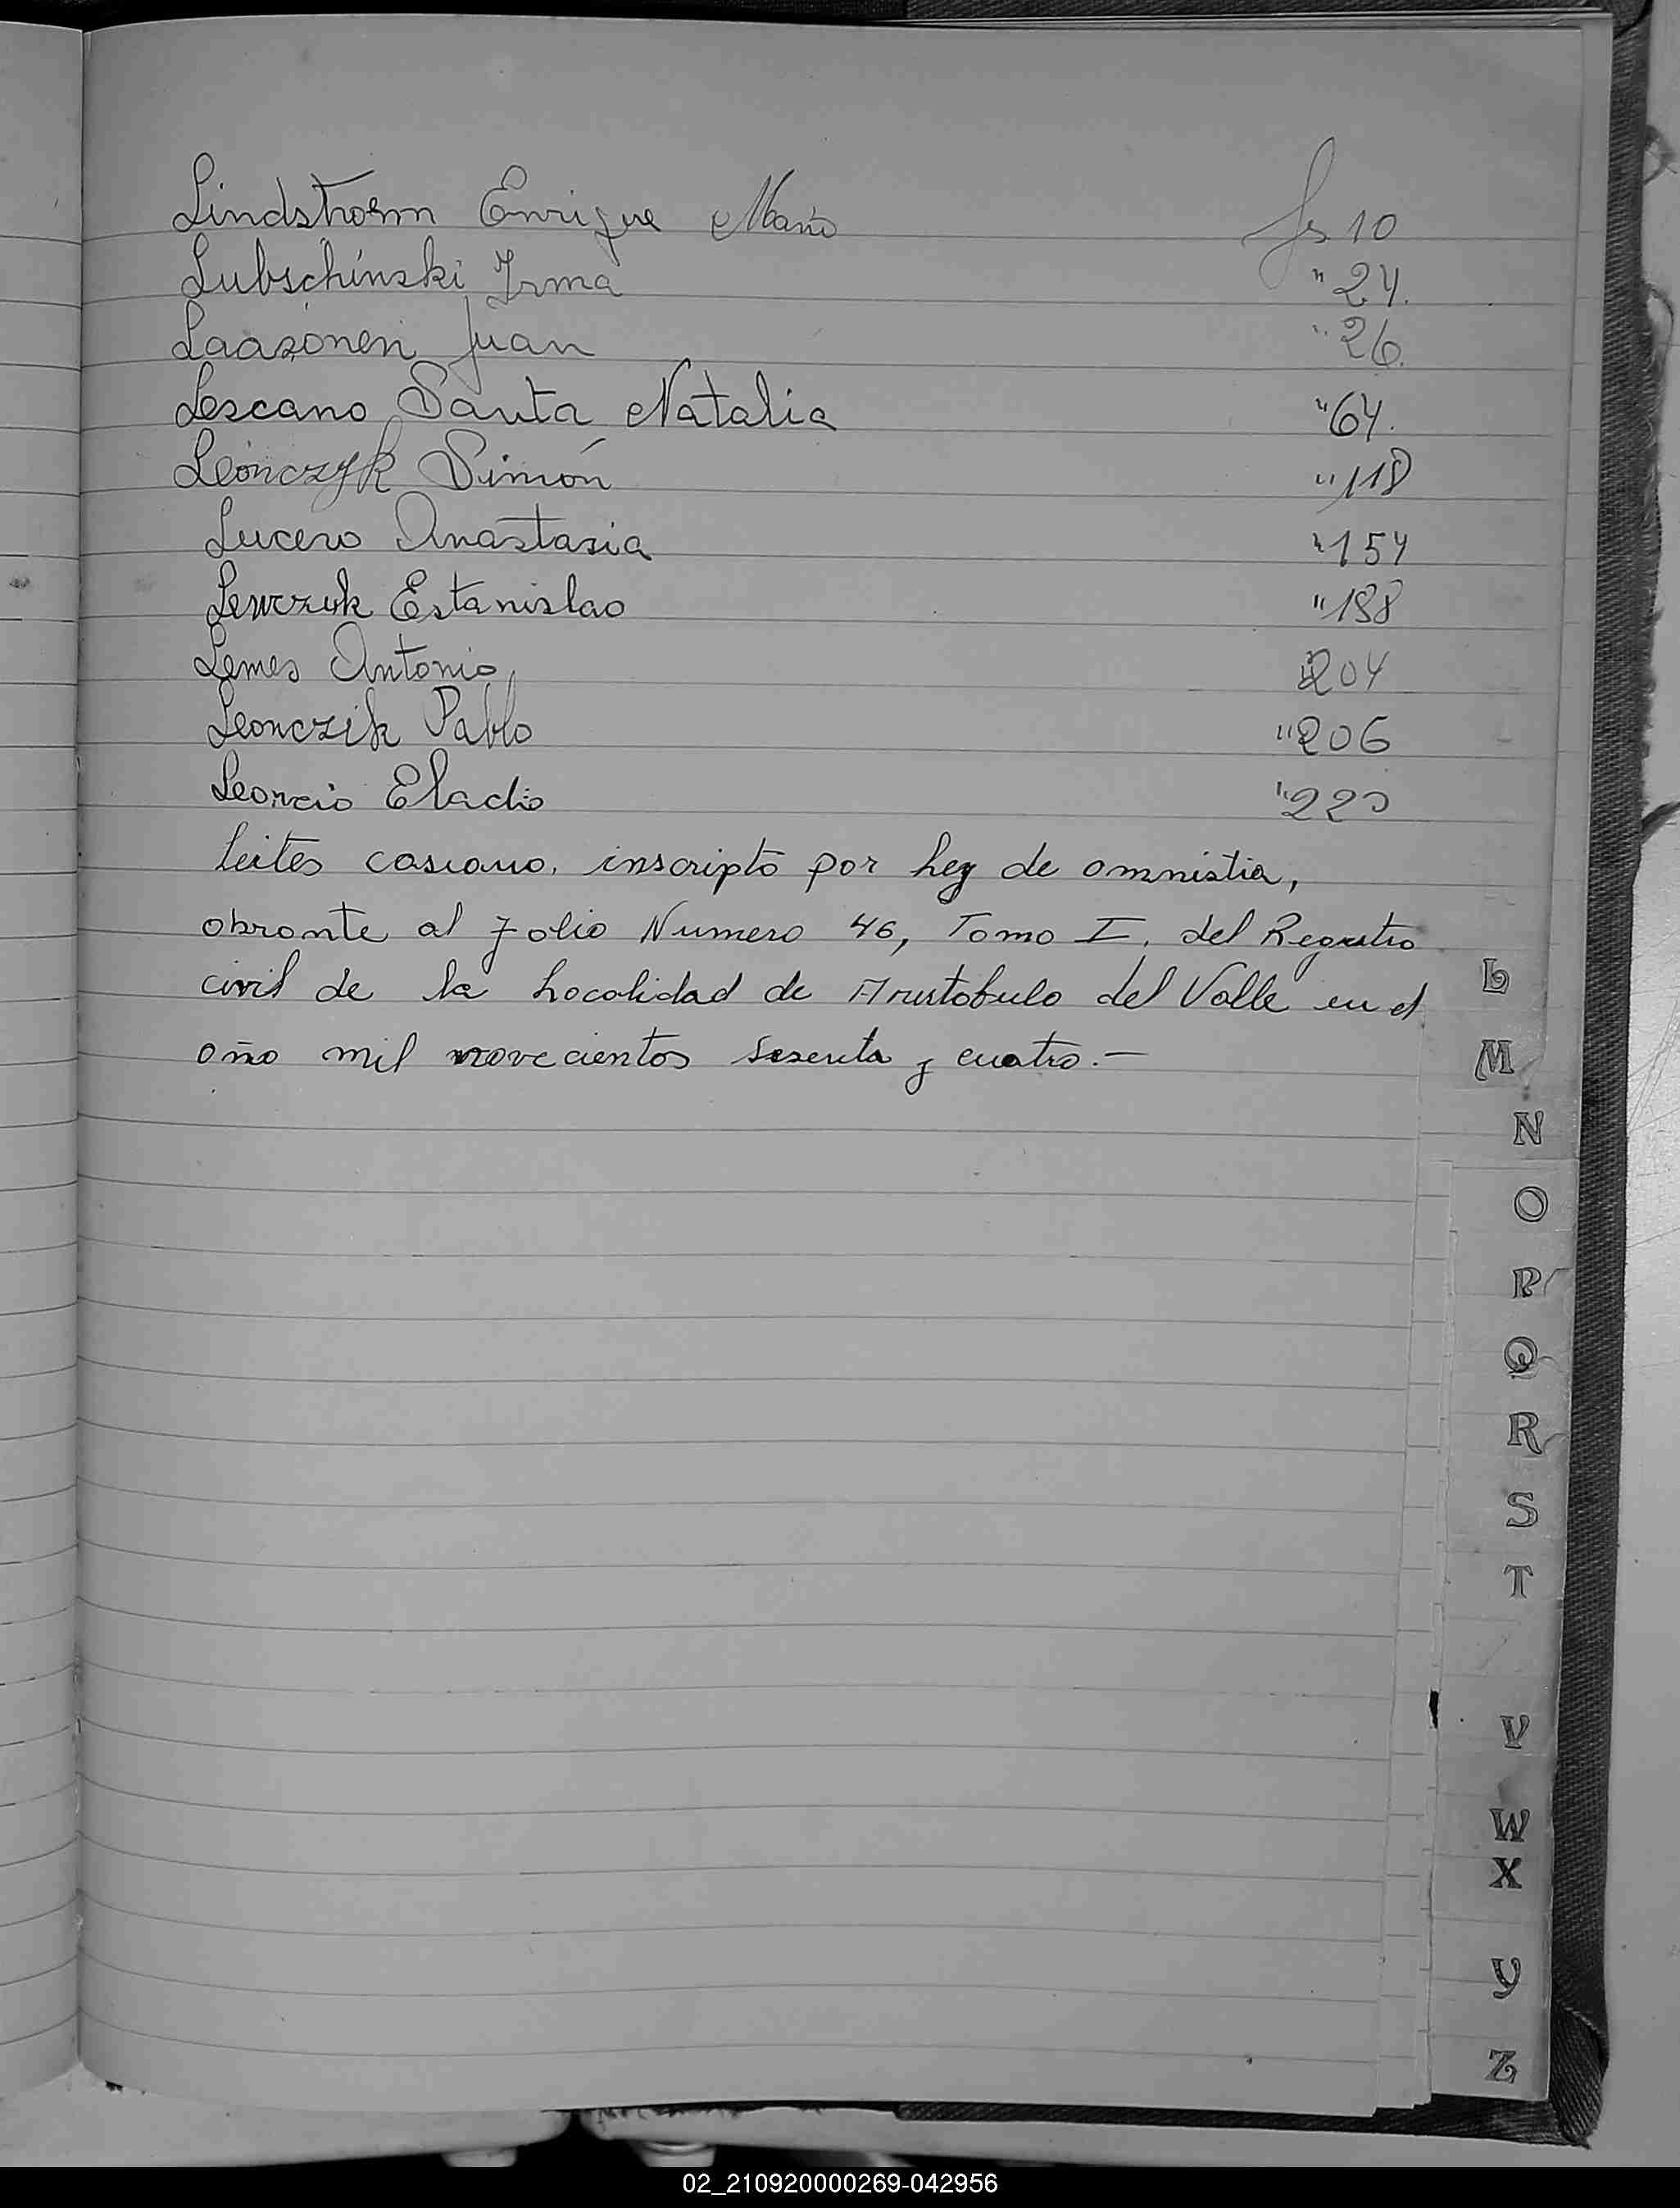 Lindstroem Enrique Mario fs 10
Lubschinski Irma " 24.
Laasonen Juan " 26.
Lescano Santa Natalia " 64.
Leonczyk Simón " 118
Lucero Anastasia " 154
Lewczuk Estanislao " 188
Lemes Antonio 204
Leonczik Pablo " 206
Leoncio Eladio " 220
Leites casiano. inscripto por Ley de amnistia,
obrante al folio Numero 46, Tomo I. del Registro
civil de la Localidad de Aristobulo del Valle en el
año mil novecientos sesenta y cuatro.—
L
M
N
O
P
Q
R
S
T
V
W
X
Y
Z
02_210920000269-042956